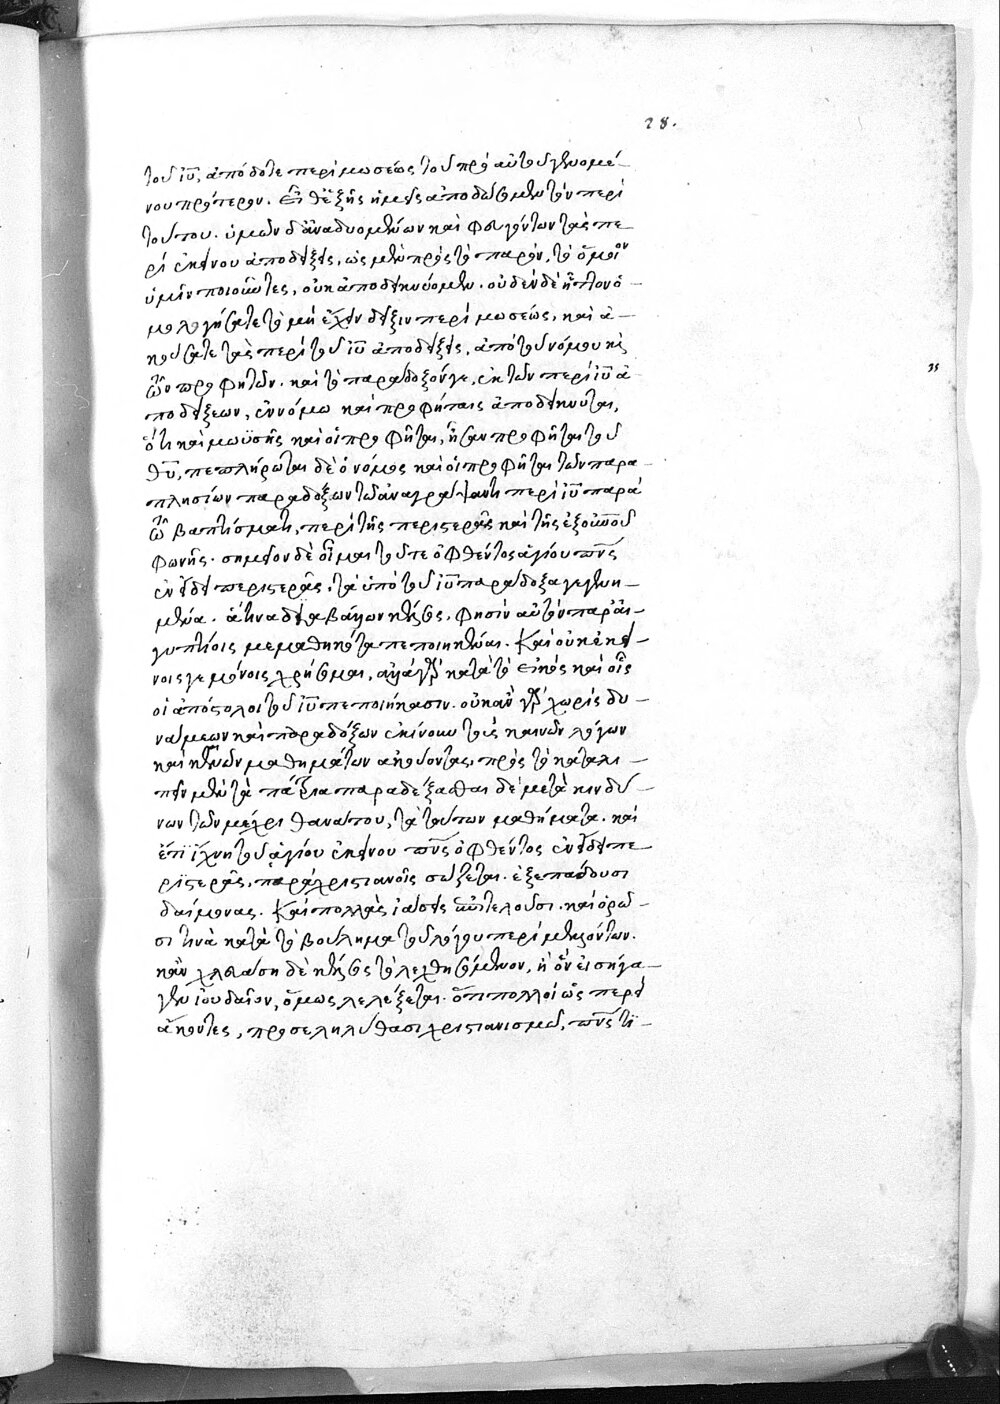 28.
τοῦ ἰῦ, ἀπόδοτε περὶ μωσέως τοῦ πρὸ αὐτοῦ γενομέ-
νου πρότερον. εἶθ' ἑξῆς ἡμεῖς ἀποδώσομεν τὸν περὶ
τούτου. ὑμῶν δ' ἀναδυομένων καὶ φευγόντων τὰς πε-
ρὶ ἐκείνου ἀποδείξεις, ὡς μὲν πρὸς τὸ παρὸν, τὸ ὅμοιον
ὑμῖν ποιοῦντες, οὐκ ἀποδείκνύομεν. οὐδὲν δὲ ἧττον ὁ-
μολογήσατε τὸ μὴ ἔχειν δεῖξιν περὶ μωσέως, καὶ ἀ-
κούσατε τὰς περὶ τοῦ ἰῦ ἀποδείξεις, ἀπὸ τοῦ νόμου κὶ
τῶν προφητῶν. καὶ τὸ παράδοξόν γε, ἐκ τῶν περὶ ἰῦ ἀ-
ποδείξεων, ἐν νόμω καὶ προφήταις ἀποδείκνυται,
ὅτι καὶ μωϋσῆς καὶ οἱ προφῆται, ἦσαν προφῆται τοῦ
θῦ, πεπλήρωται δὲ ὁ νόμος καὶ οἱ προφῆται τῶν παρα-
πλησίων παραδόξων τῶ ἀναγραφέντι περὶ ἰῦ παρὰ
τῶ βαπτίσματι, περὶ τῆς περιστερᾶς καὶ τῆς ἐξ οὐνοῦ
φωνῆς. σημεῖον δὲ οἶμαι τοῦ τε ὀφθέντος ἁγίου πνς
ἐν εἴδει περιστερᾶς, τὰ ὑπὸ τοῦ ἰῦ παράδοξα γεγενη-
μένα. ἅτινα διαβάλλων κέλσος, φησὶν αὐτὸν παρ' αἰ-
γυπτίοις μεμαθηκότα πεποιηκέναι. καὶ οὐκ ἐκεί-
νοις γε μόνοις χρήσομαι, ἀλλὰ γὰρ κατὰ τὸ εἰκὸς καὶ οἷς
οἱ ἀπόστολοι τοῦ ἰῦ πεποιήκασιν. οὐκ ἂν γὰρ χωρὶς δυ-
νάμεων καὶ παραδόξων ἐκίνουν τοὺς καινῶν λόγων
καὶ καινῶν μαθημάτων ἀκούοντας, πρὸς τὸ καταλι-
πεῖν μὲν τὰ πάτρια παραδέξασθαι δὲ μετὰ κινδύ-
νων τῶν μέχρι θανάτου, τὰ τούτων μαθήματα. καὶ
ἔτι ἴχνη τοῦ ἁγίου ἐκείνου πνς ὀφθέντος ἐν εἴδει πε-
ριστερᾶς, παρὰ χριστιανοῖς σώζεται. ἐξεπάδουσι
δαίμονας. καὶ πολλὰς ἰάσεις ἐπιτελοῦσι. καὶ ὁρῶ-
σι τινὰ κατὰ τὸ βούλημα τοῦ λόγου περὶ μελλόντων.
κἂν χλευάση δὲ κέλσος τὸ λεχθησόμενον, ἢ ὃν εἰσήγα-
γεν ἰουδαῖον, ὅμως λελέξεται. ὅτι πολλοὶ ὡς περεὶ
ἄκοντες, προσεληλύθασι χριστιανισμῶ, πνς τι-